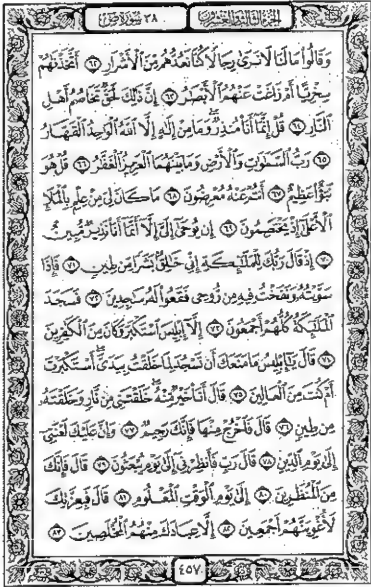 ٣٨ سورة ص
الجزء الثالث والعشرون
وَقَالُوا۟ مَا لَنَا لَا نَرَىٰ رِجَالًا كُنَّا نَعُدُّهُم مِّنَ ٱلْأَشْرَارِ ٦٢ أَتَّخَذْنَٰهُمْ
سِخْرِيًّا أَمْ زَاغَتْ عَنْهُمُ ٱلْأَبْصَٰرُ ٦٣ إِنَّ ذَٰلِكَ لَحَقٌّ تَخَاصُمُ أَهْلِ
ٱلنَّارِ ٦٤ قُلْ إِنَّمَآ أَنَا۠ مُنذِرٌ ۖ وَمَا مِنْ إِلَٰهٍ إِلَّا ٱللَّهُ ٱلْوَٰحِدُ ٱلْقَهَّارُ
٦٥ رَبُّ ٱلسَّمَٰوَٰتِ وَٱلْأَرْضِ وَمَا بَيْنَهُمَا ٱلْعَزِيزُ ٱلْغَفَّٰرُ ٦٦ قُلْ هُوَ
نَبَؤٌا۟ عَظِيمٌ ٦٧ أَنتُمْ عَنْهُ مُعْرِضُونَ ٦٨ مَا كَانَ لِىَ مِنْ عِلْمٍۭ بِٱلْمَلَإِ
ٱلْأَعْلَىٰٓ إِذْ يَخْتَصِمُونَ ٦٩ إِن يُوحَىٰٓ إِلَىَّ إِلَّآ أَنَّمَآ أَنَا۠ نَذِيرٌ مُّبِينٌ
٧٠ إِذْ قَالَ رَبُّكَ لِلْمَلَٰٓئِكَةِ إِنِّى خَٰلِقٌۢ بَشَرًا مِّن طِينٍ ٧١ فَإِذَا
سَوَّيْتُهُۥ وَنَفَخْتُ فِيهِ مِن رُّوحِى فَقَعُوا۟ لَهُۥ سَٰجِدِينَ ٧٢ فَسَجَدَ
ٱلْمَلَٰٓئِكَةُ كُلُّهُمْ أَجْمَعُونَ ٧٣ إِلَّآ إِبْلِيسَ ٱسْتَكْبَرَ وَكَانَ مِنَ ٱلْكَٰفِرِينَ
٧٤ قَالَ يَٰٓإِبْلِيسُ مَا مَنَعَكَ أَن تَسْجُدَ لِمَا خَلَقْتُ بِيَدَىَّ ۖ أَسْتَكْبَرْتَ
أَمْ كُنتَ مِنَ ٱلْعَالِينَ ٧٥ قَالَ أَنَا۠ خَيْرٌ مِّنْهُ ۖ خَلَقْتَنِى مِن نَّارٍ وَخَلَقْتَهُۥ
مِن طِينٍ ٧٦ قَالَ فَٱخْرُجْ مِنْهَا فَإِنَّكَ رَجِيمٌ ٧٧ وَإِنَّ عَلَيْكَ لَعْنَتِىٓ
إِلَىٰ يَوْمِ ٱلدِّينِ ٧٨ قَالَ رَبِّ فَأَنظِرْنِىٓ إِلَىٰ يَوْمِ يُبْعَثُونَ ٧٩ قَالَ فَإِنَّكَ
مِنَ ٱلْمُنظَرِينَ ٨٠ إِلَىٰ يَوْمِ ٱلْوَقْتِ ٱلْمَعْلُومِ ٨١ قَالَ فَبِعِزَّتِكَ
لَأُغْوِيَنَّهُمْ أَجْمَعِينَ ٨٢ إِلَّا عِبَادَكَ مِنْهُمُ ٱلْمُخْلَصِينَ ٨٣
٤٥٧